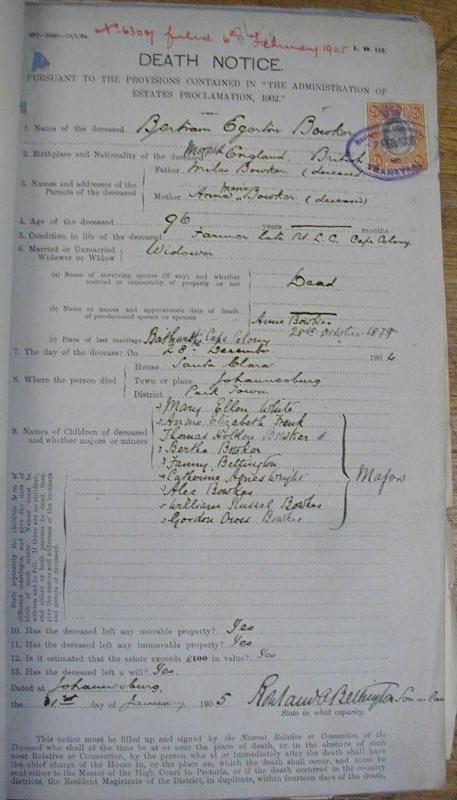 No. 6309 filed 6th February 1905 L. D. 112.
DEATH NOTICE.
PURSUANT TO THE PROVISIONS CONTAINED IN "THE ADMINISTRATION OF
ESTATES PROCLAMATION, 1902."
1. Name of the deceased Bertram Egerton Bowker
2. Birthplace and Nationality of the deceased England British
3. Names and addresses of the Parents of the deceased Father Miles Bowker (deceased)
Mother Anna Maria Bowker (deceased)
4. Age of the deceased 96 years months
5. Condition in life of the deceased Farmer late M.L.C. Cape Colony
6. Married or Unmarried Widower or Widow Widower
(a) Name of surviving spouse (if any) and whether married in community of property or not Dead
(b) Name or names and approximate date of death of pre-deceased spouse or spouses Anne Bowker
28th October 1879
(c) Place of last marriage Bathurst Cape Colony
7. The day of the decease: On 28 December 1904
8. Where the person died House Santa Clara
Town or place Johannesburg
District Park Town
9. Names of Children of deceased and whether majors or minors
Mary Ellen White
Anne Elizabeth
Thomas Holden Bowker
Bertha Bowker
Fanny Bettington
Catherine Agnes
Alec Bowker
William Russel Bowker
Gordon Cross Bowker
Majors
State separately the children born of
different marriages, and give the date of
birth of each minor. Names must be
written out in full. If there are no children,
and either or both parents be dead, then
give the names and addresses of the brothers
and sisters of deceased.
10. Has the deceased left any movable property? Yes
11. Has the deceased left any immovable property? Yes
12. Is it estimated that the estate exceeds £100 in value? Yes
13. Has the deceased left a will? Yes
Dated at Johannesburg
the 31st day of January 1905 Rowland A Bettington Son in law
State in what capacity.
This notice must be filled up and signed by the Nearest Relative or Connection of the
Deceased who shall at the time be at or near the place of death, or in the absence of such
near Relative or Connection, by the person who at or immediately after the death shall have
the chief charge of the House in, or the place on, which the death shall occur, and must be
sent either to the Master of the High Court in Pretoria, or if the death occurred in the country
districts, the Resident Magistrate of the District, in duplicate, within fourteen days of the death.